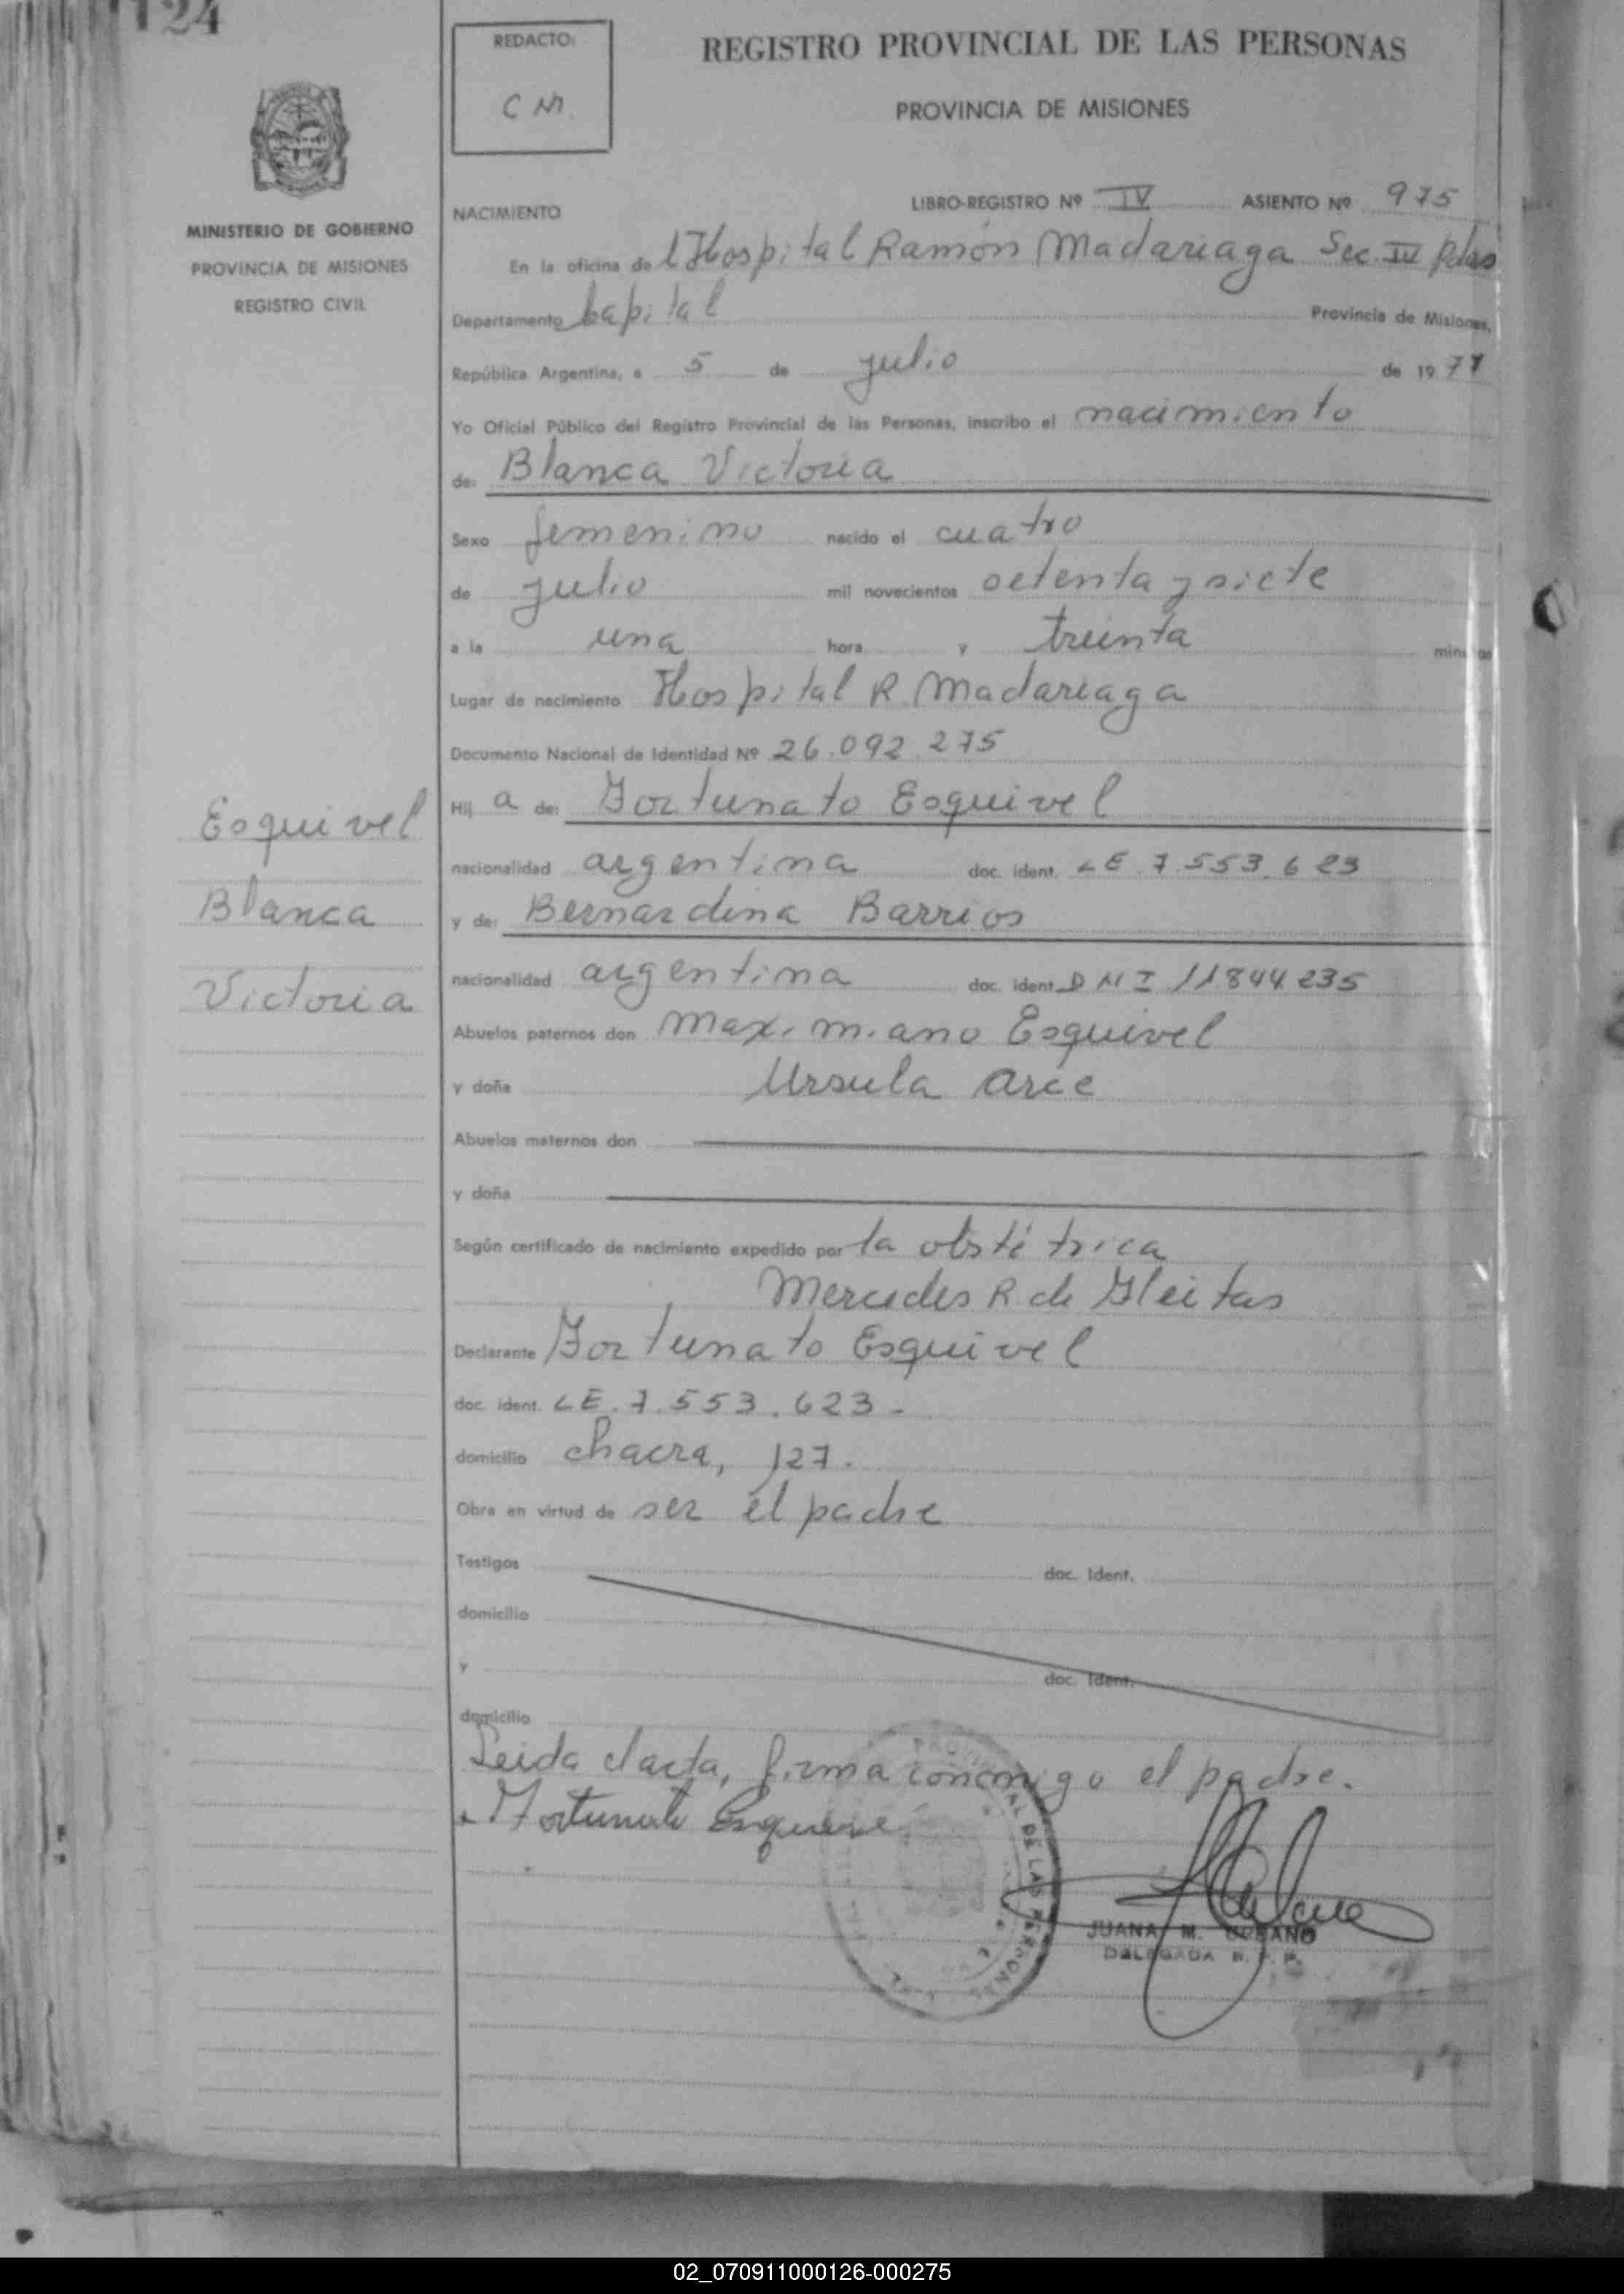 124
REDACTO:
C M.
REGISTRO PROVINCIAL DE LAS PERSONAS
PROVINCIA DE MISIONES
MINISTERIO DE GOBIERNO
PROVINCIA DE MISIONES
REGISTRO CIVIL
NACIMIENTO LIBRO-REGISTRO Nº IV ASIENTO Nº 975
En la oficina de l Hospital Ramón Madariaga Sec. IV Pdas
Departamento Capital Provincia de Misiones,
República Argentina, a 5 de julio de 1977
Yo Oficial Público del Registro Provincial de las Personas, inscribo el nacimiento
de: Blanca Victoria
Sexo femenino nacido el cuatro
de julio mil novecientos setenta y siete
a la una hora y treinta minutos
Lugar de nacimiento Hospital R. Madariaga
Documento Nacional de Identidad Nº 26.092.275
Hij a de: Fortunato Esquivel
nacionalidad argentina doc. ident. LE 7.553.623
y de: Bernardina Barrios
nacionalidad argentina doc. ident. DNI 11844.235
Abuelos paternos don Maximiano Esquivel
y doña Ursula Arce
Abuelos maternos don
y doña
Según certificado de nacimiento expedido por la obstétrica
Mercedes R. de Gleitas
Declarante Fortunato Esquivel
doc. ident. LE. 7.553.623.
domicilio chacra, 127.
Obra en virtud de ser el padre
Testigos doc. Ident.
domicilio
y doc. Ident.
domicilio
Leida el acta, firma conmigo el padre.
Fortunato Esquivel
PROVINCIAL DE LAS PERSONAS
JUANA M.
DELEGADA R. P. P.
Esquivel
Blanca
Victoria
02_070911000126-000275